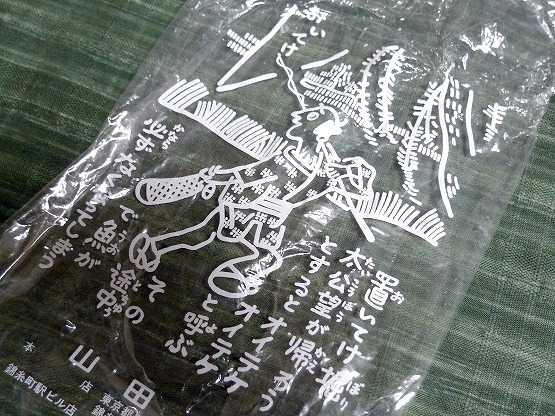 おいてけ
置いてけ堀
太公望が帰ろう
とすると オイテケ
オイテケ
と呼ぶ
その
途中
で魚が
必ずな
てしまう
山田
本店 東京
錦糸町駅ビル店